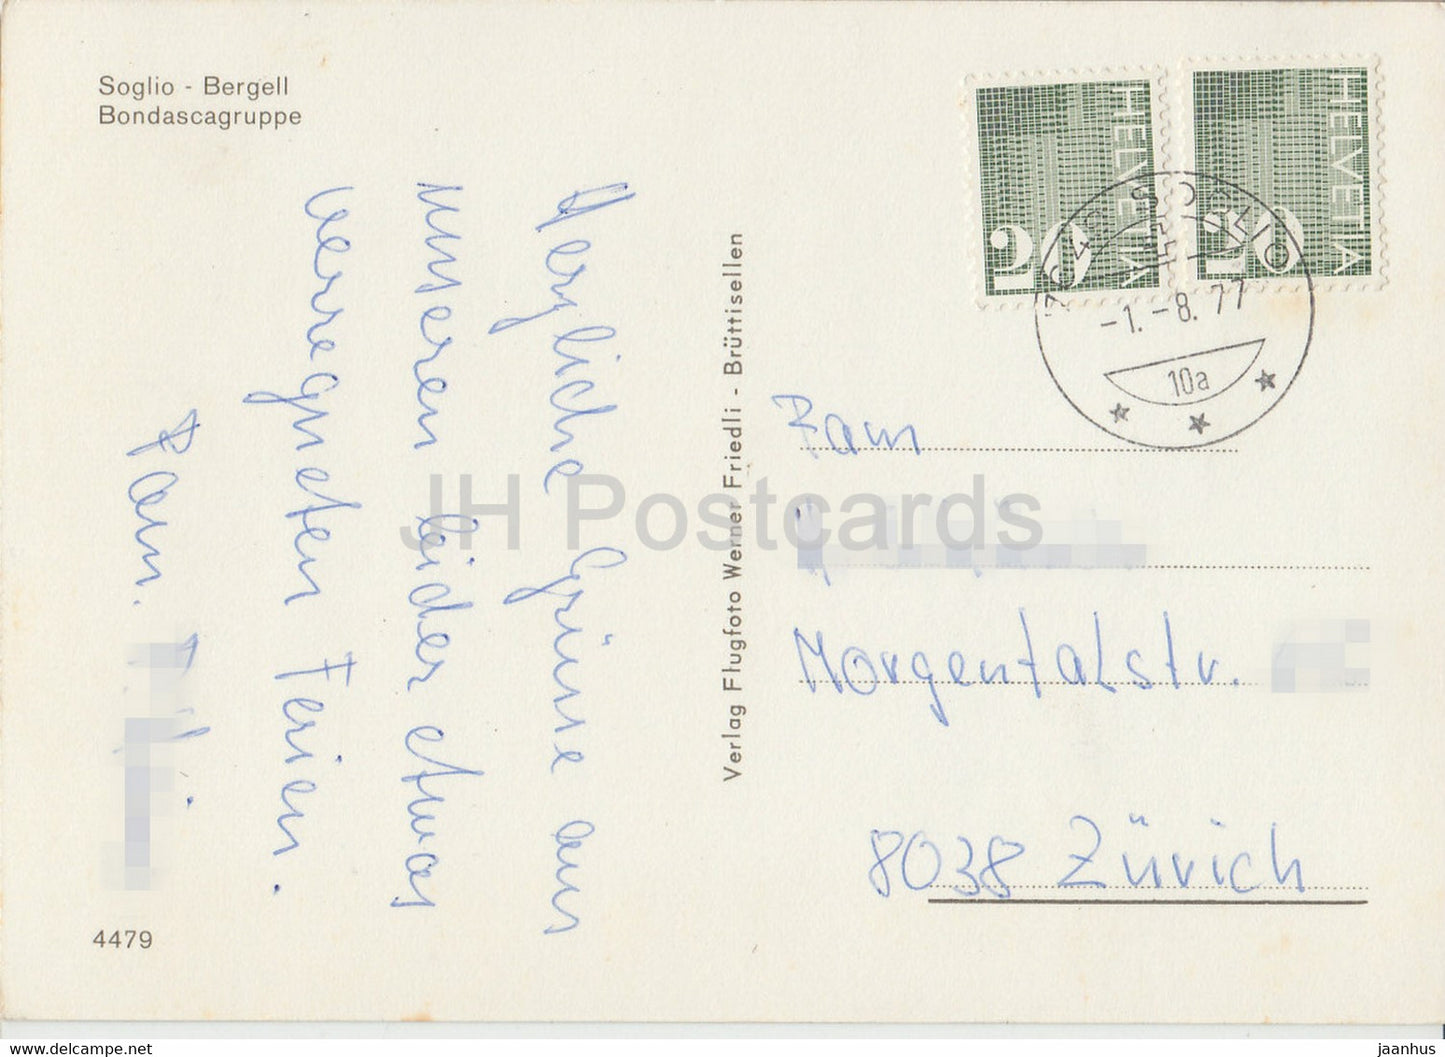 Soglio - Bergell
Bondascagruppe
HELVETIA
20
HELVETIA
20
SOGLIO
-1.-8.77
10a
Herzliche Grüsse aus
unseren leider etwas
verregneten Ferien.
Fam.
Verlag Flugfoto Werner Friedli - Brüttisellen
Fam
Morgentalstr.
8038 Zürich
4479
JH Postcards
jaanhus
www.delcampe.net